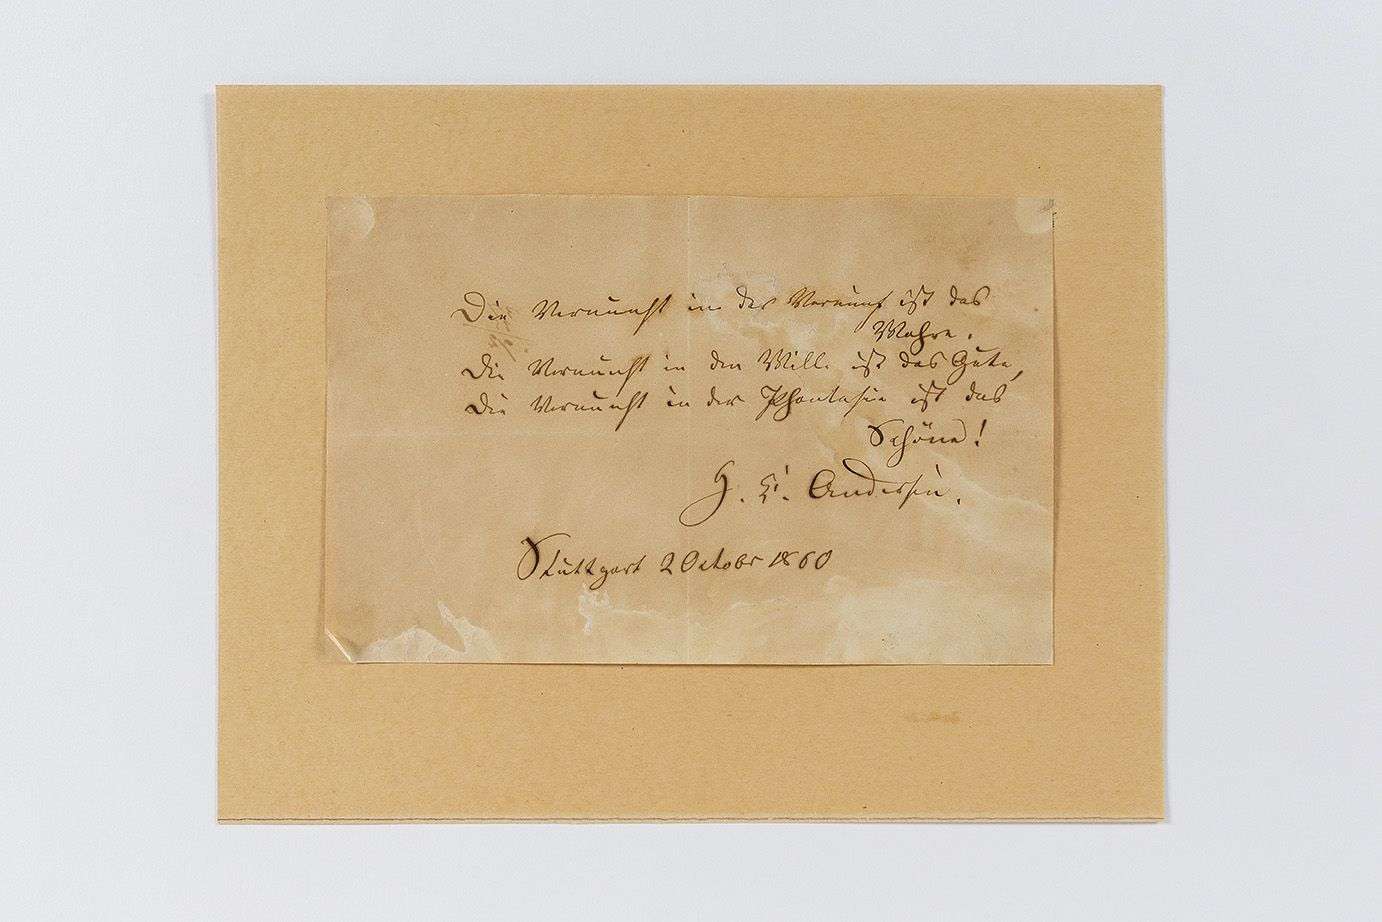 Die Vernunft in der Vernunf ist das
Wahre.
Die Vernunft in den Wille ist das Gute,
Die Vernunft in der Phantasie ist das
Schöne!
H. C. Andersen.
Stuttgart 2 Octobr 1860